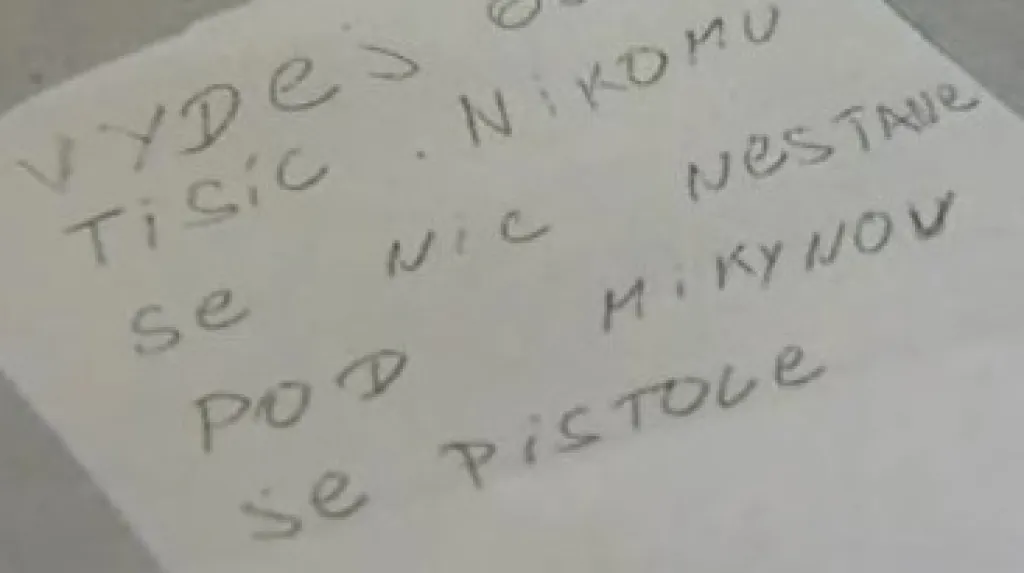 VYDeS
TiSiC . NiKOMU
Se NiC NeSTANe
POD MiKYNOU
je PiSTOLe